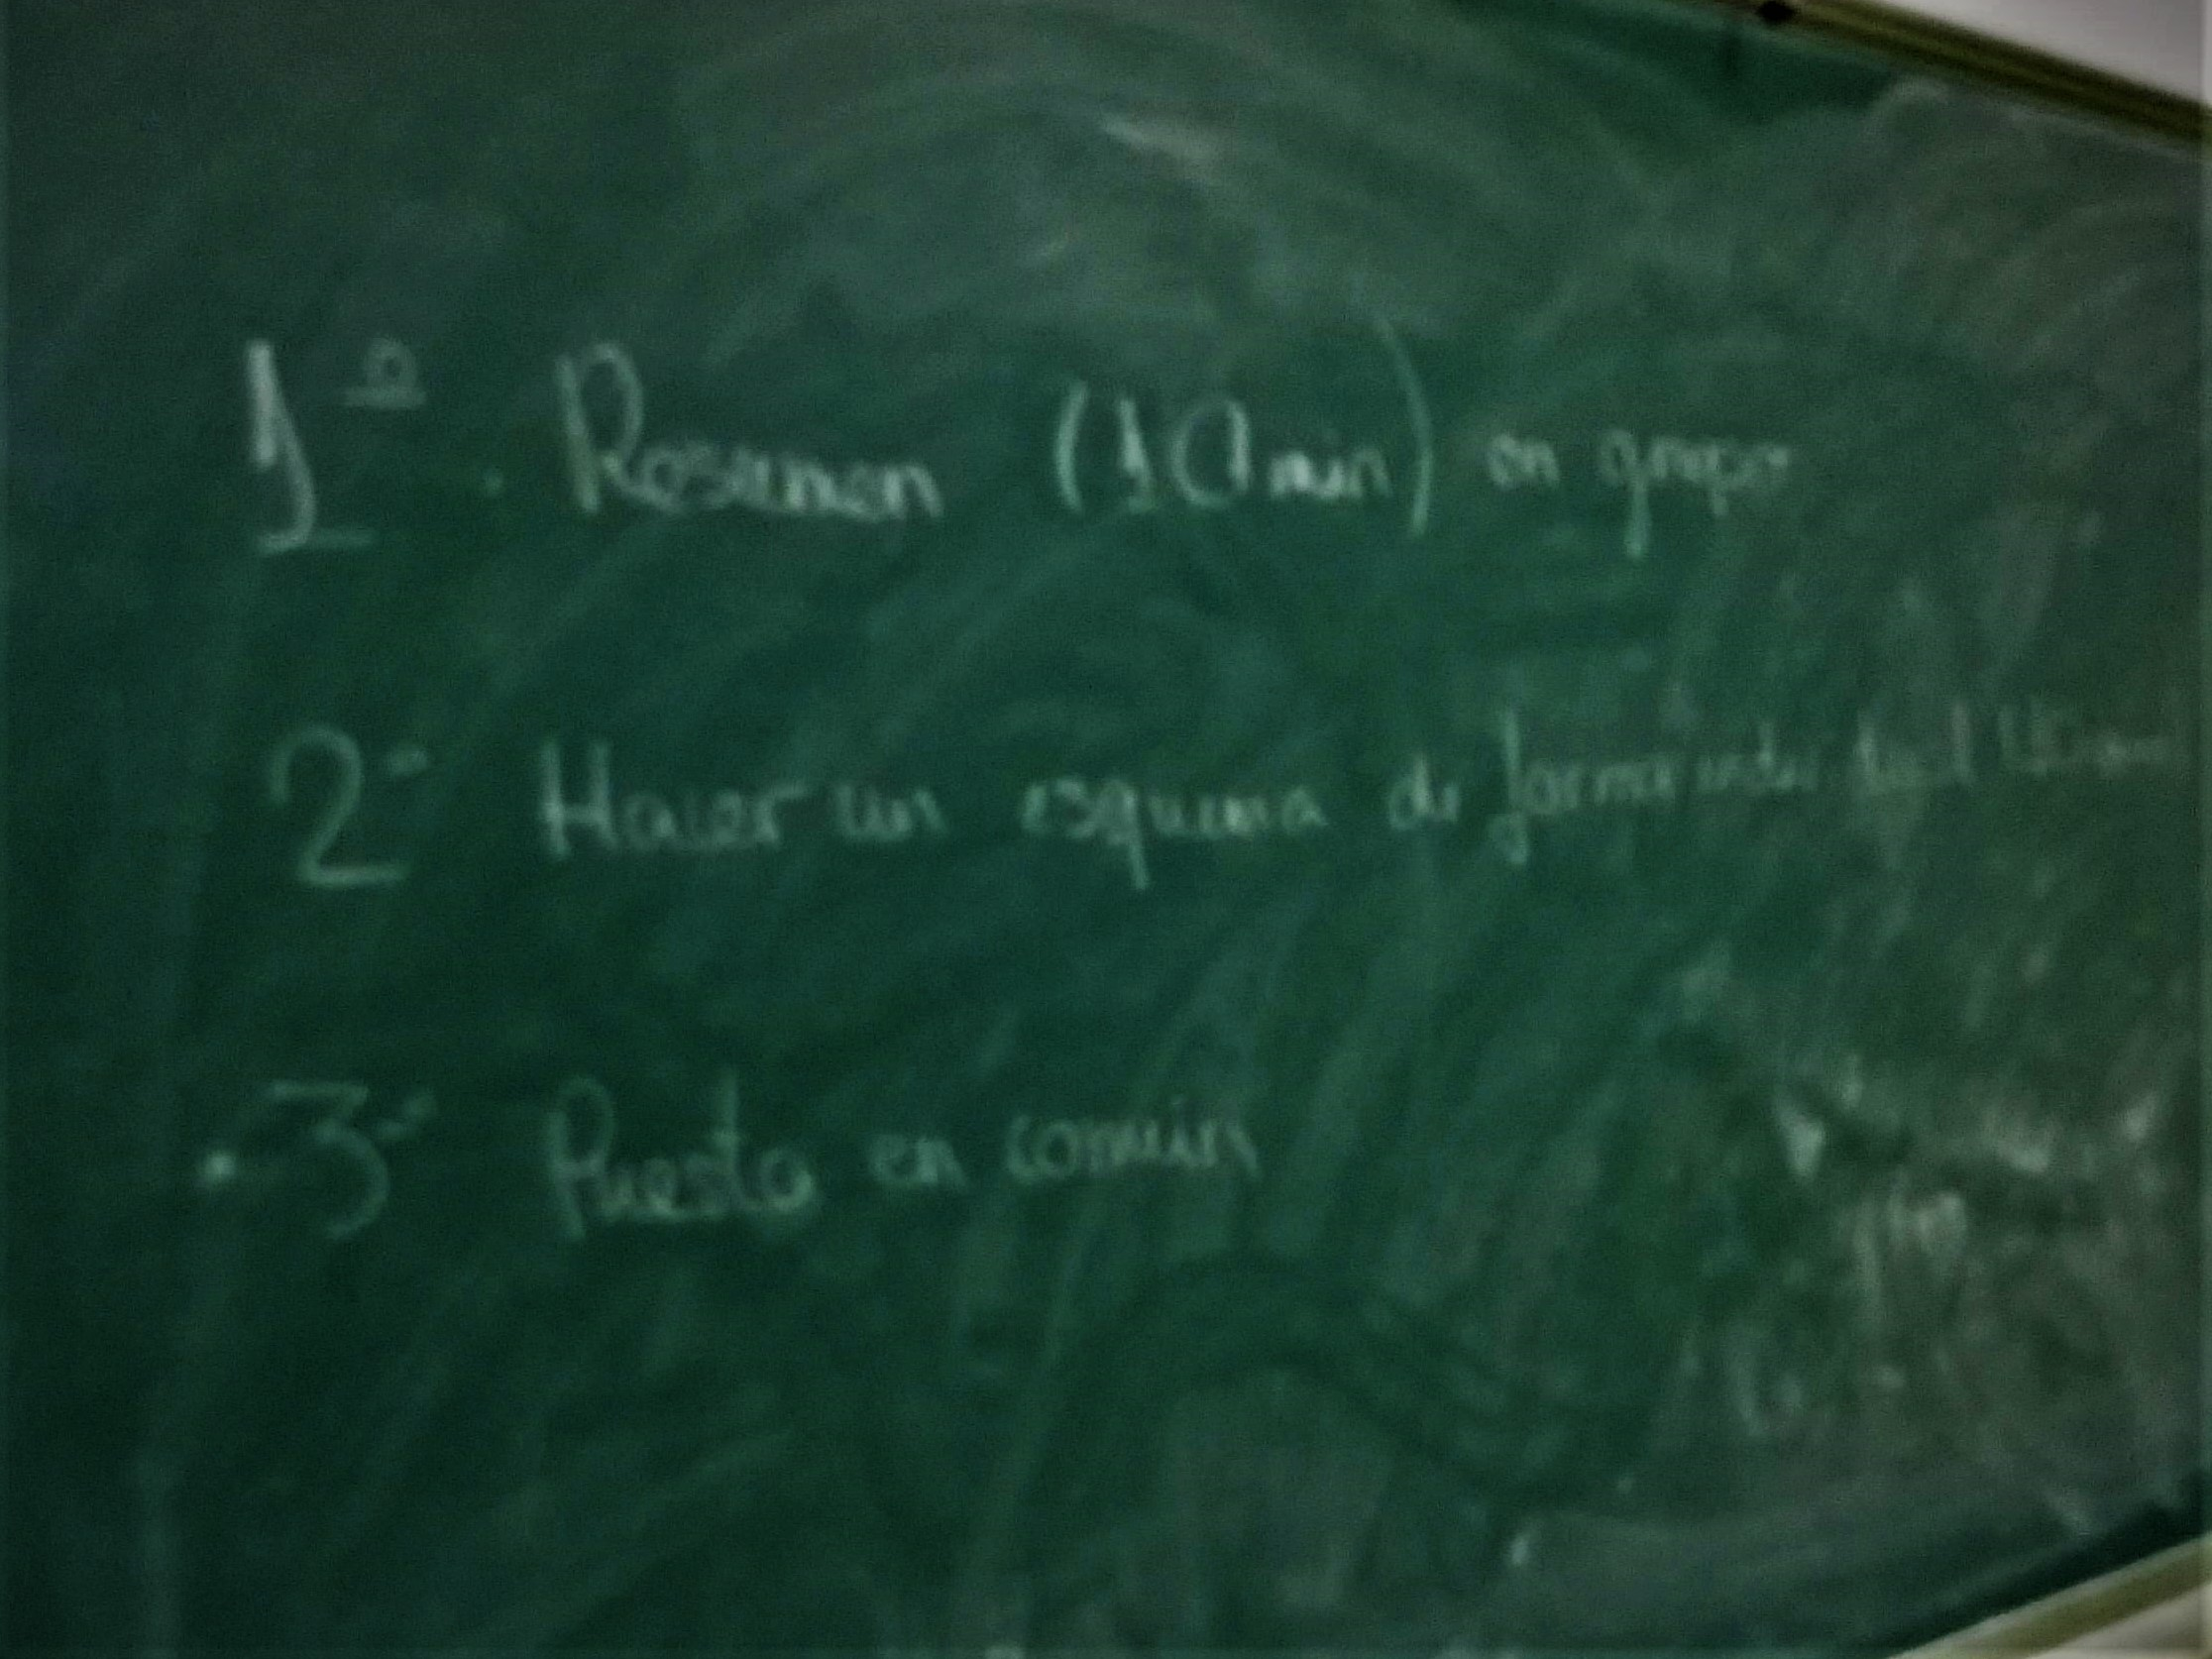 1º. Resumen (10 min) en grupo
2º Hacer un esquema de forma
3º Puesta en común